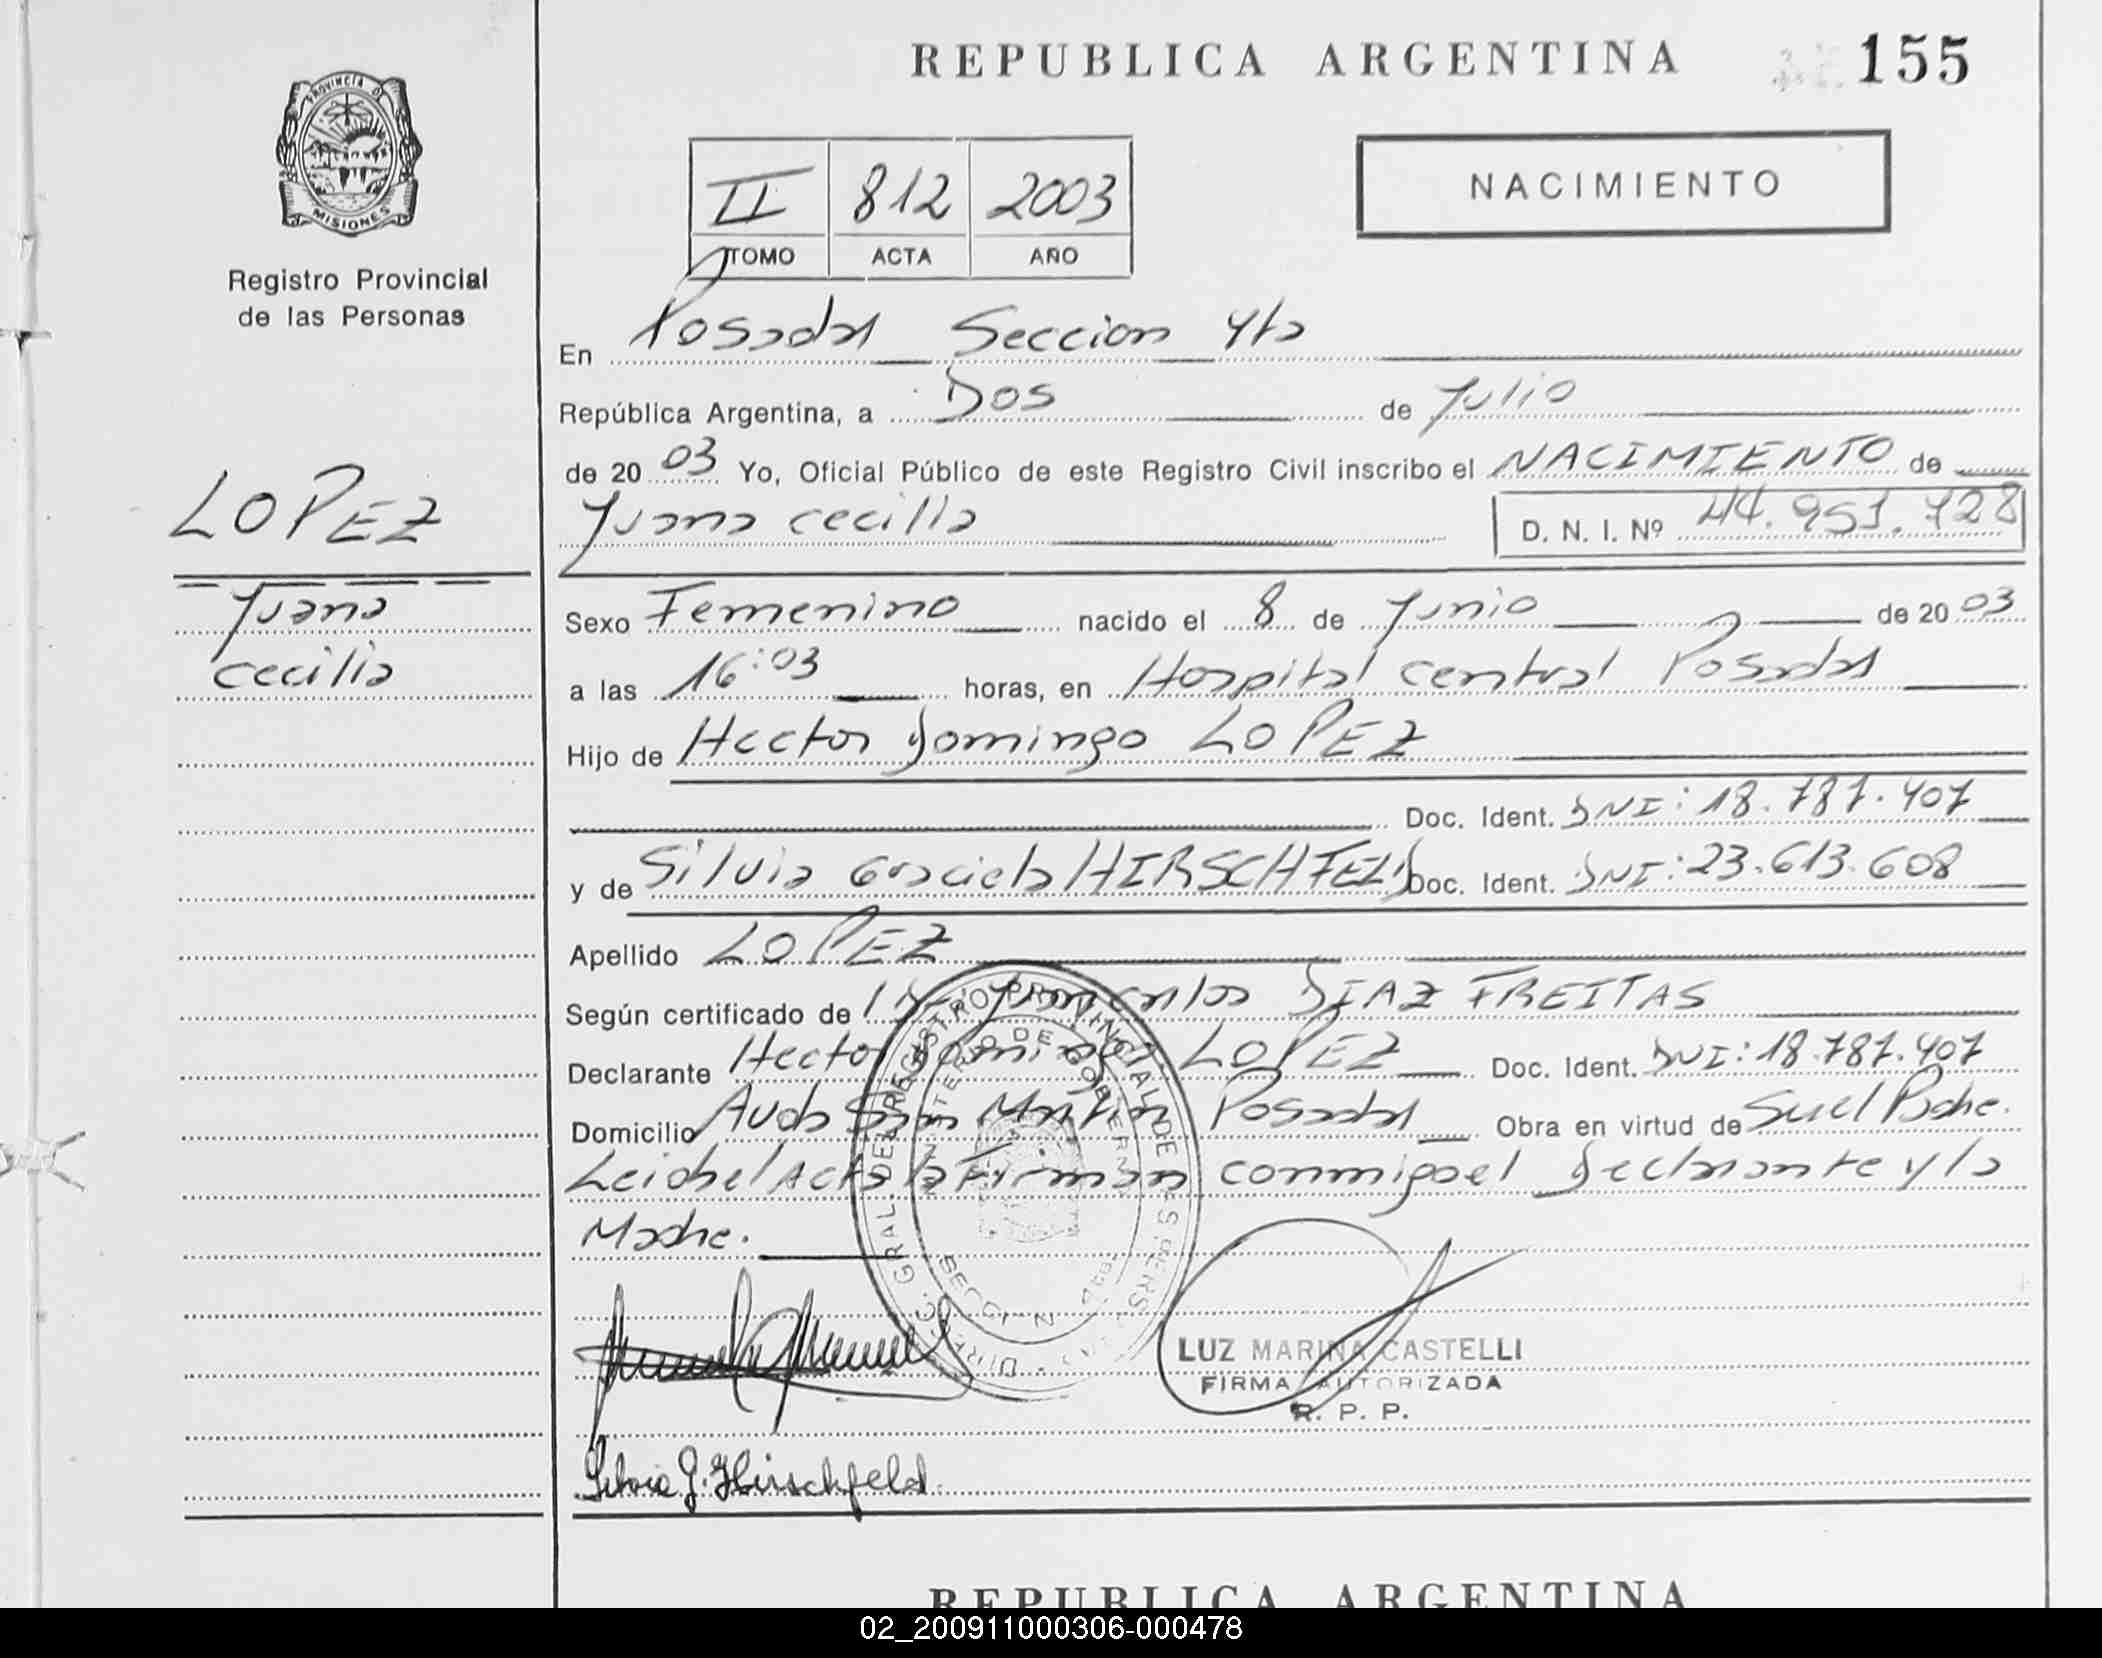 REPUBLICA ARGENTINA 155
PROVINCIA D
MISIONES
Registro Provincial
de las Personas
II 812 2003
TOMO ACTA AÑO
NACIMIENTO
En Posadas Seccion 4ta
República Argentina, a Dos de Julio
de 20 03 Yo, Oficial Público de este Registro Civil inscribo el NACIMIENTO de
Juana cecilia D. N. I. Nº 44.951.728
LOPEZ
Juana
cecilia
Sexo Femenino nacido el 8 de Junio de 20 03
a las 16:03 horas, en Hospital central Posadas
Hijo de Hector Domingo LOPEZ
Doc. Ident. DNI: 18.787.407
y de Silvia Graciela HIRSCHFELD Doc. Ident. DNI: 23.613.608
Apellido LOPEZ
Según certificado de Juan Carlos DIAZ FREITAS
Declarante Hector Domingo LOPEZ Doc. Ident. DNI: 18.787.407
Domicilio Avda San Martin Posadas Obra en virtud de Ser el Padre.
Leida el Acta la Firman conmigo el Declarante y la
Madre.
DIREC. GRAL. DEL REGISTRO PROVINCIAL DE LAS PERSONAS
MINISTERIO DE GOBIERNO
LUZ MARINA CASTELLI
FIRMA AUTORIZADA
R. P. P.
Silvia G. Hirschfeld
REPUBLICA ARGENTINA
02_200911000306-000478